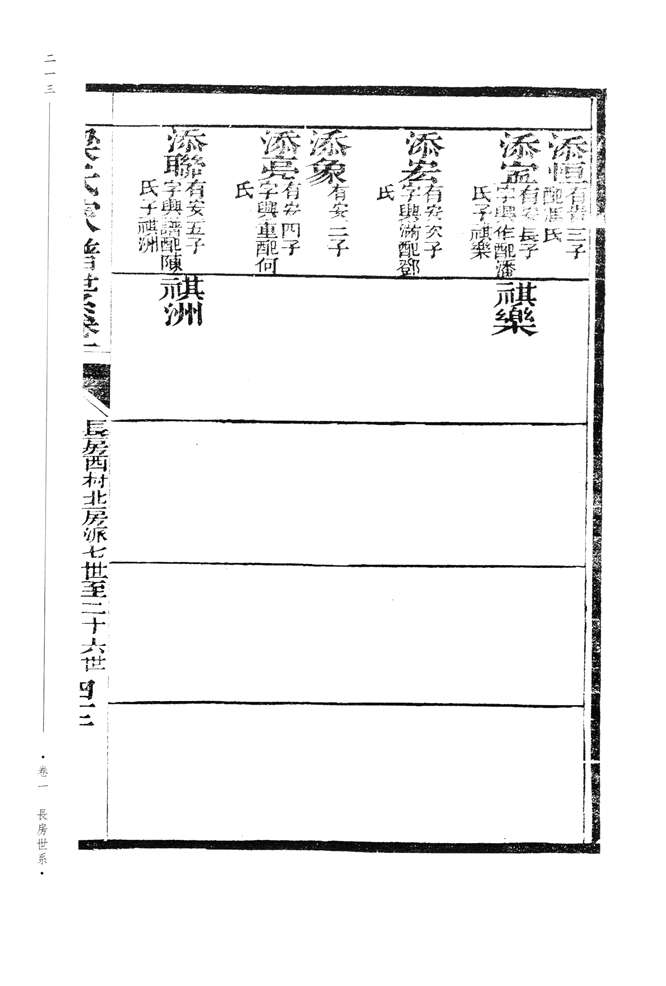 添恒
有貴三子
配周氏
添宣
有安長子
字興作配潘
氏子祺樂
添宏
有安次子
字興滿配鄧
氏
添象
有安三子
添亮
有安四子
字興重配何
氏
添聯
有安五子
字興譜配陳
氏子祺洲
祺樂
祺洲
梁氏家譜世系卷一
長房西村北房派七世至二十六世
四十三
二一三
·卷一 長房世系·